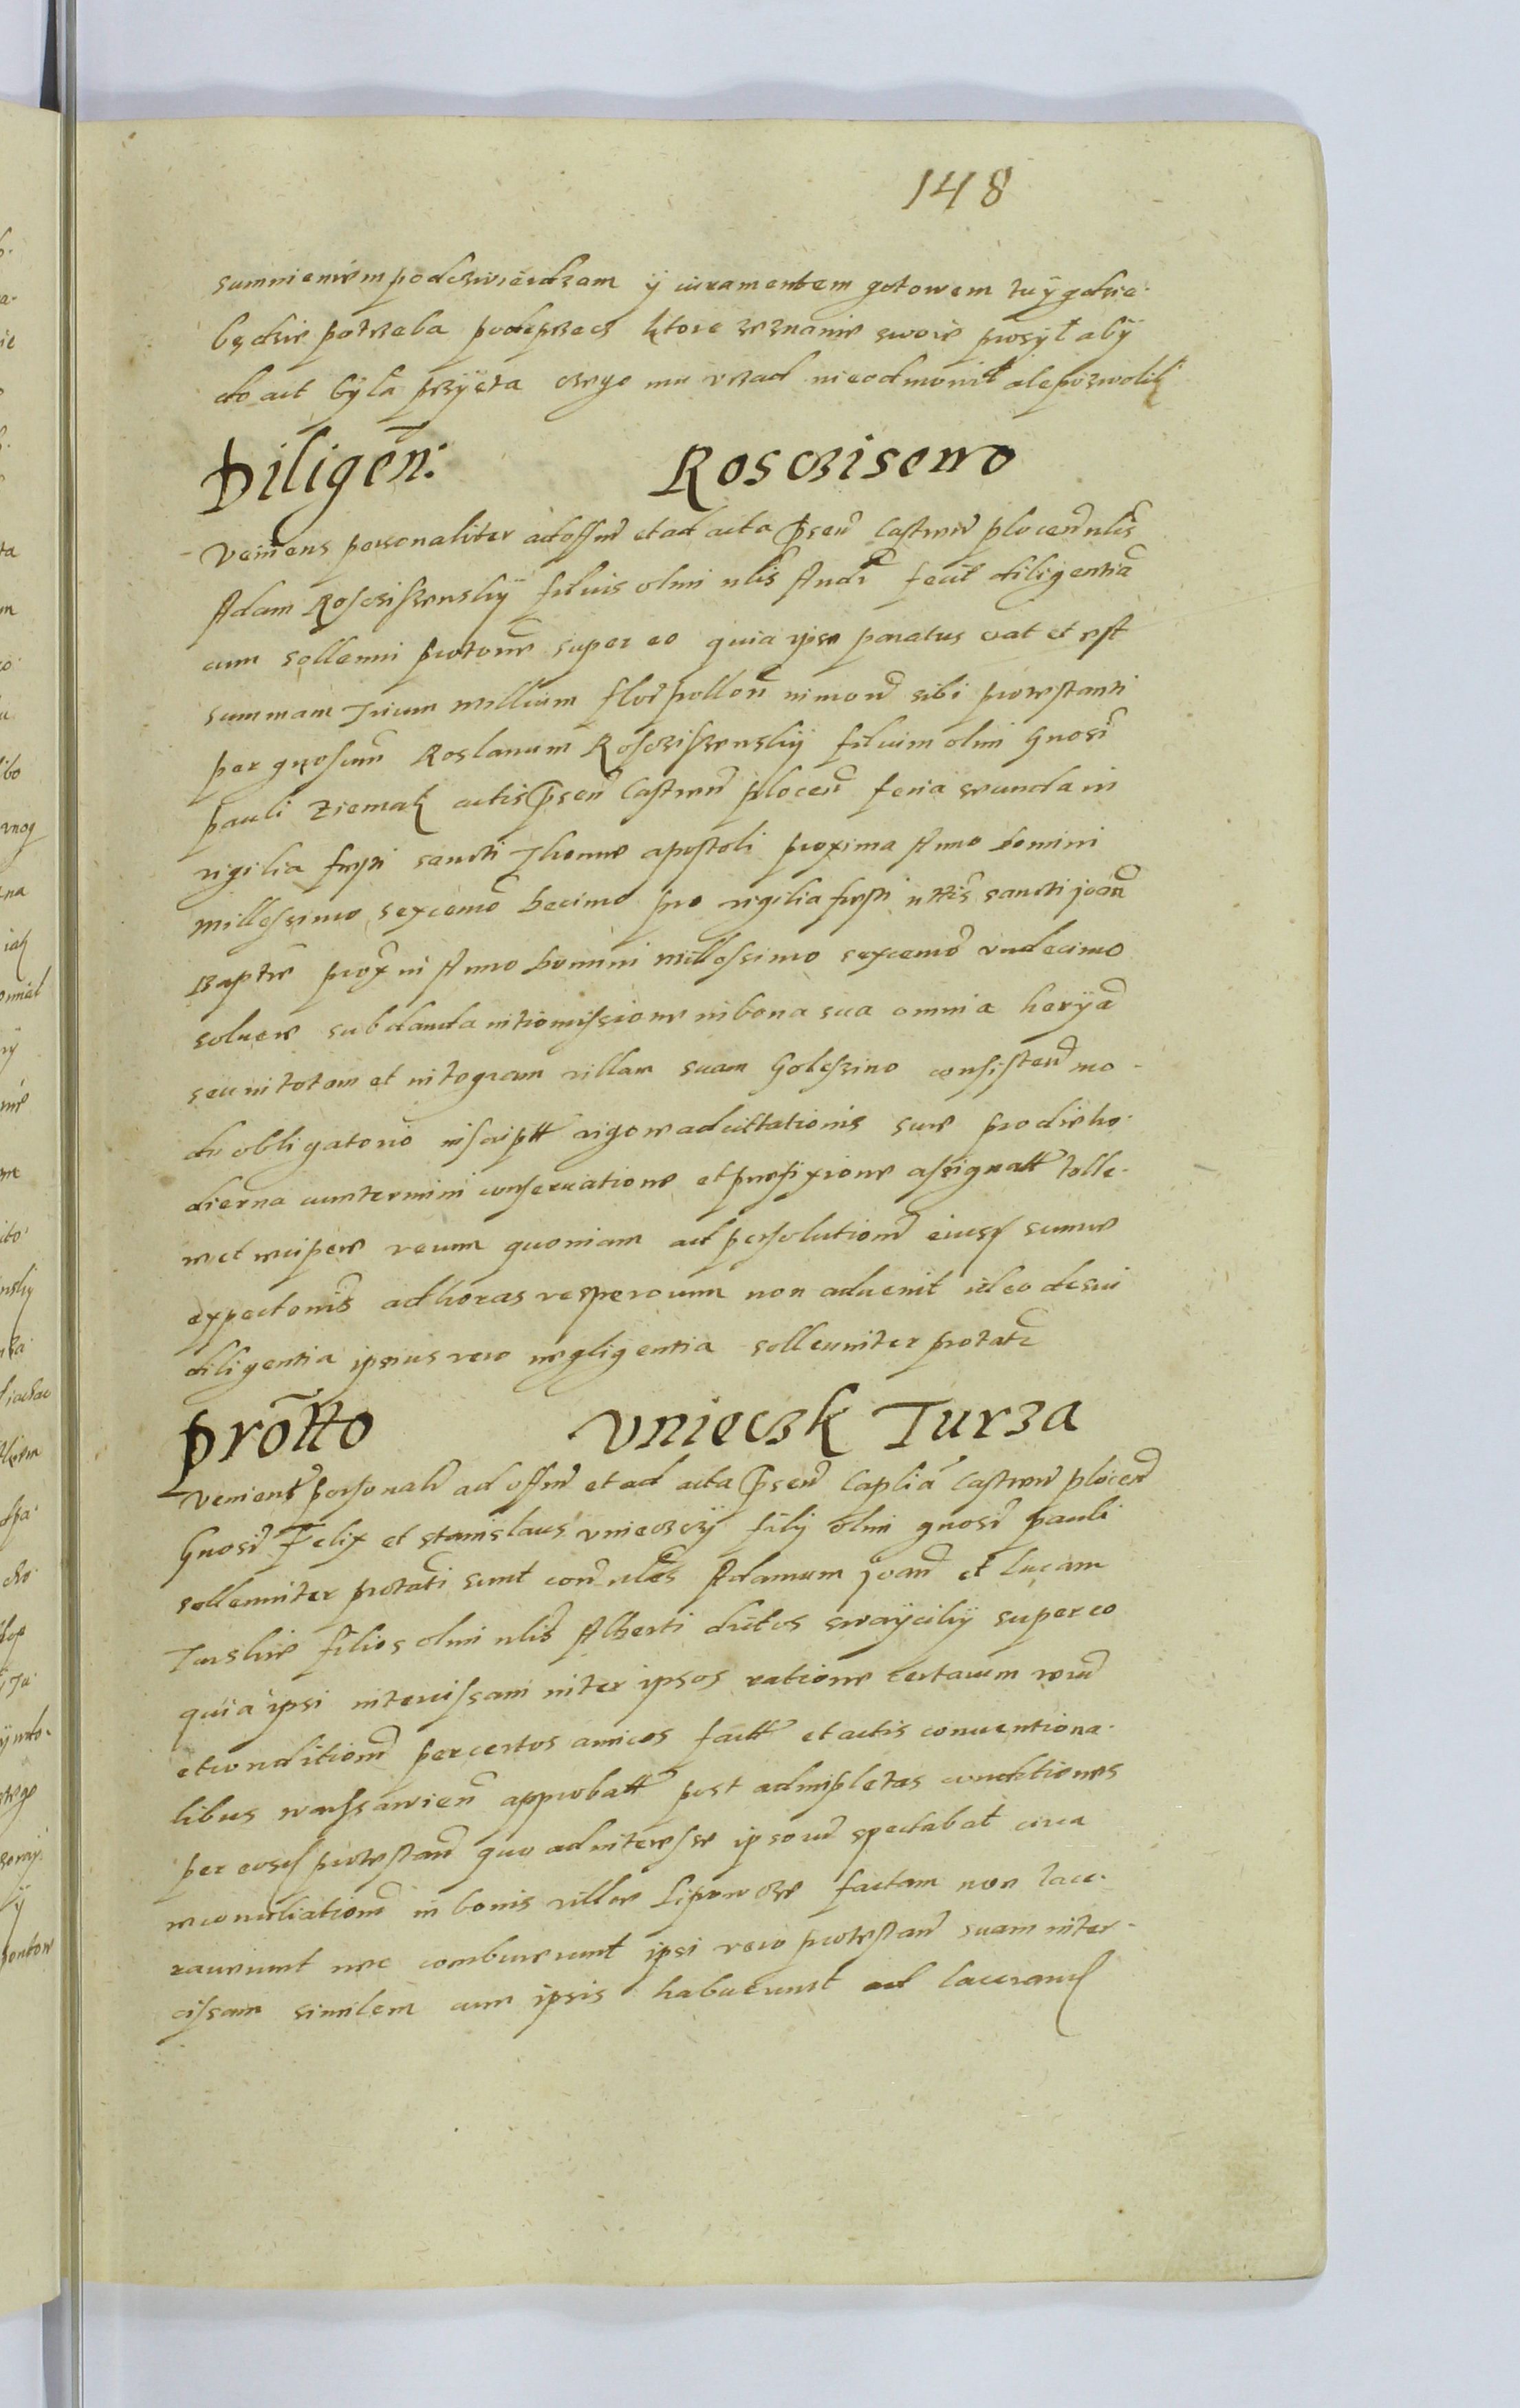 148
sumnieniem podczwierdzam ÿ iuramentem gotowem tuÿ gdzie
będzie potrzeba podeprzecz ktore zeznanie swoie prosÿł abÿ
do act bÿla przÿęta czego mu vrzad nieodmowił ale pozwolił
Diligen: Rosczisewo
Veniens personaliter ad offm et ad acta psen Castren plocen nlis
Adam Rosciszewskÿ filius olmi nlis Andr fecit diligentia
cum sollenni protone super eo quia ipse paratus erat et est
summam Trium millium flor pollon in mon sibi protestanti
per gnosum Roslanum Rosciszewskÿ filium olmi Gnosi
pauli Ziemak actis psen Castren plocen feria secunda in
vigilia festi sancti Thome apostoli proxima Anno Domini
millessimo sexcemo Decimo pro vigilia festi nttis sancti joan
Baptte prox in Anno Domini millessimo sexcemo vndecimo
soluere sub danda intromissione in bona sua omnia heryd
seu in totam et integram villam suam Goleszino consisten mo
do obligatorio inscriptt vigore adcittationis sue pro die ho
dierna cum termini conseruatione et prefixione assignatt tolle
re et recipere verum quoniam ad persolutionem eiusd summe
expectonis ad horas vesperorum non aduenit ideo de sui
diligentia ipsius vero negligentia sollenniter protatr
protto Vnieczk Turza
Venient personalr ad offm et ad acta psen Caplia Castren plocen
Gnosi Felix et stanislaus vnieczczÿ filÿ olmi gnosi pauli
sollenniter protati sunt con nles Adamum joan et Lucam
Turskie filios olmi nlis Alberti dictos swaÿcikÿ super eo
quia ipsi intercissam inter ipsos ratione certarum reru
et conditionu per certos amicos factt et actis conuentiona
libus warssawien approbatt post adimpletas conditiones
per eosd protestan quo ad interesse ipsoru spectabat circa
reconciliationem in bonis ville Lipowcze factam non lace
rauerunt nec combuserunt ipsi vero protestan suam inter
cissam similem cum ipsis habuerunt ad lacerand